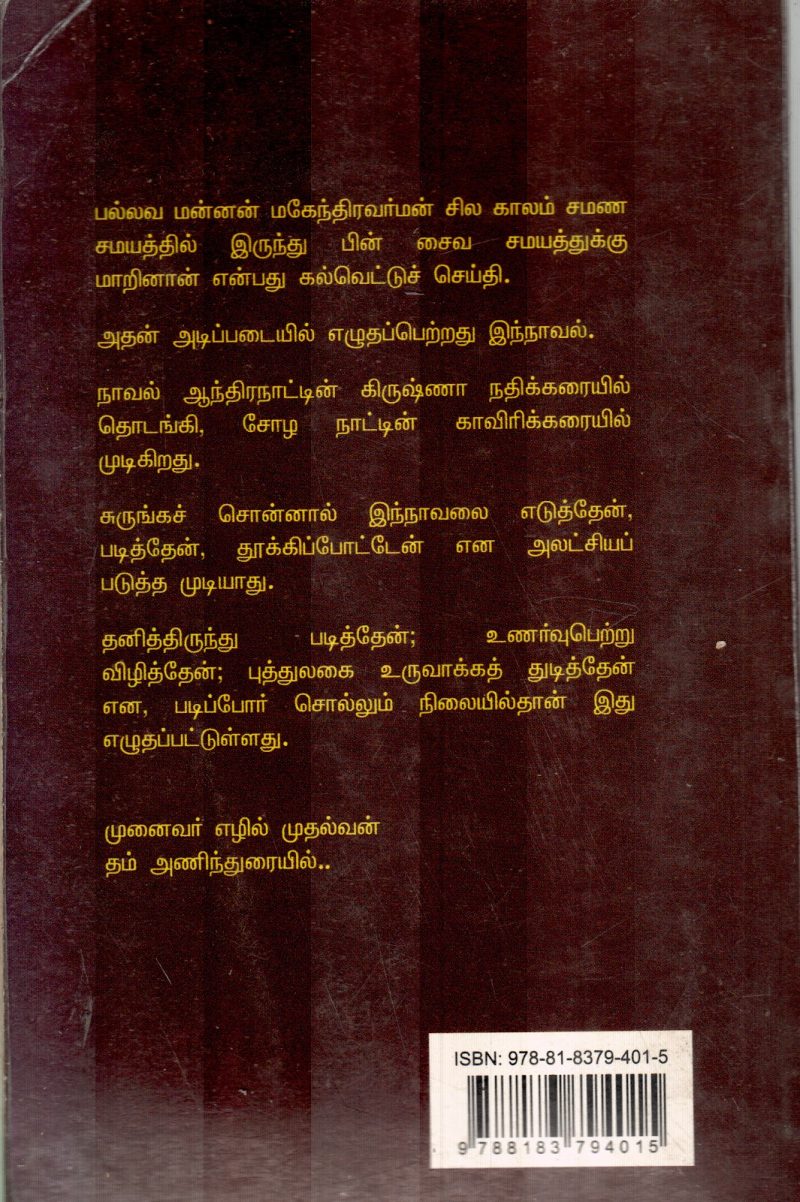 பல்லவ மன்னன் மகேந்திரவர்மன் சில காலம் சமண
சமயத்தில் இருந்து பின் சைவ சமயத்துக்கு
மாறினான் என்பது கல்வெட்டுச் செய்தி.
அதன் அடிப்படையில் எழுதப்பெற்றது இந்நாவல்.
நாவல் ஆந்திரநாட்டின் கிருஷ்ணா நதிக்கரையில்
தொடங்கி, சோழ நாட்டின் காவிரிக்கரையில்
முடிகிறது.
சுருங்கச் சொன்னால் இந்நாவலை எடுத்தேன்,
படித்தேன், தூக்கிப்போட்டேன் என அலட்சியப்
படுத்த முடியாது.
தனித்திருந்து படித்தேன்; உணர்வுபெற்று
விழித்தேன்; புத்துலகை உருவாக்கத் துடித்தேன்
என, படிப்போர் சொல்லும் நிலையில்தான் இது
எழுதப்பட்டுள்ளது.
முனைவர் எழில் முதல்வன்
தம் அணிந்துரையில்..
ISBN: 978-81-8379-401-5
9 788183 794015